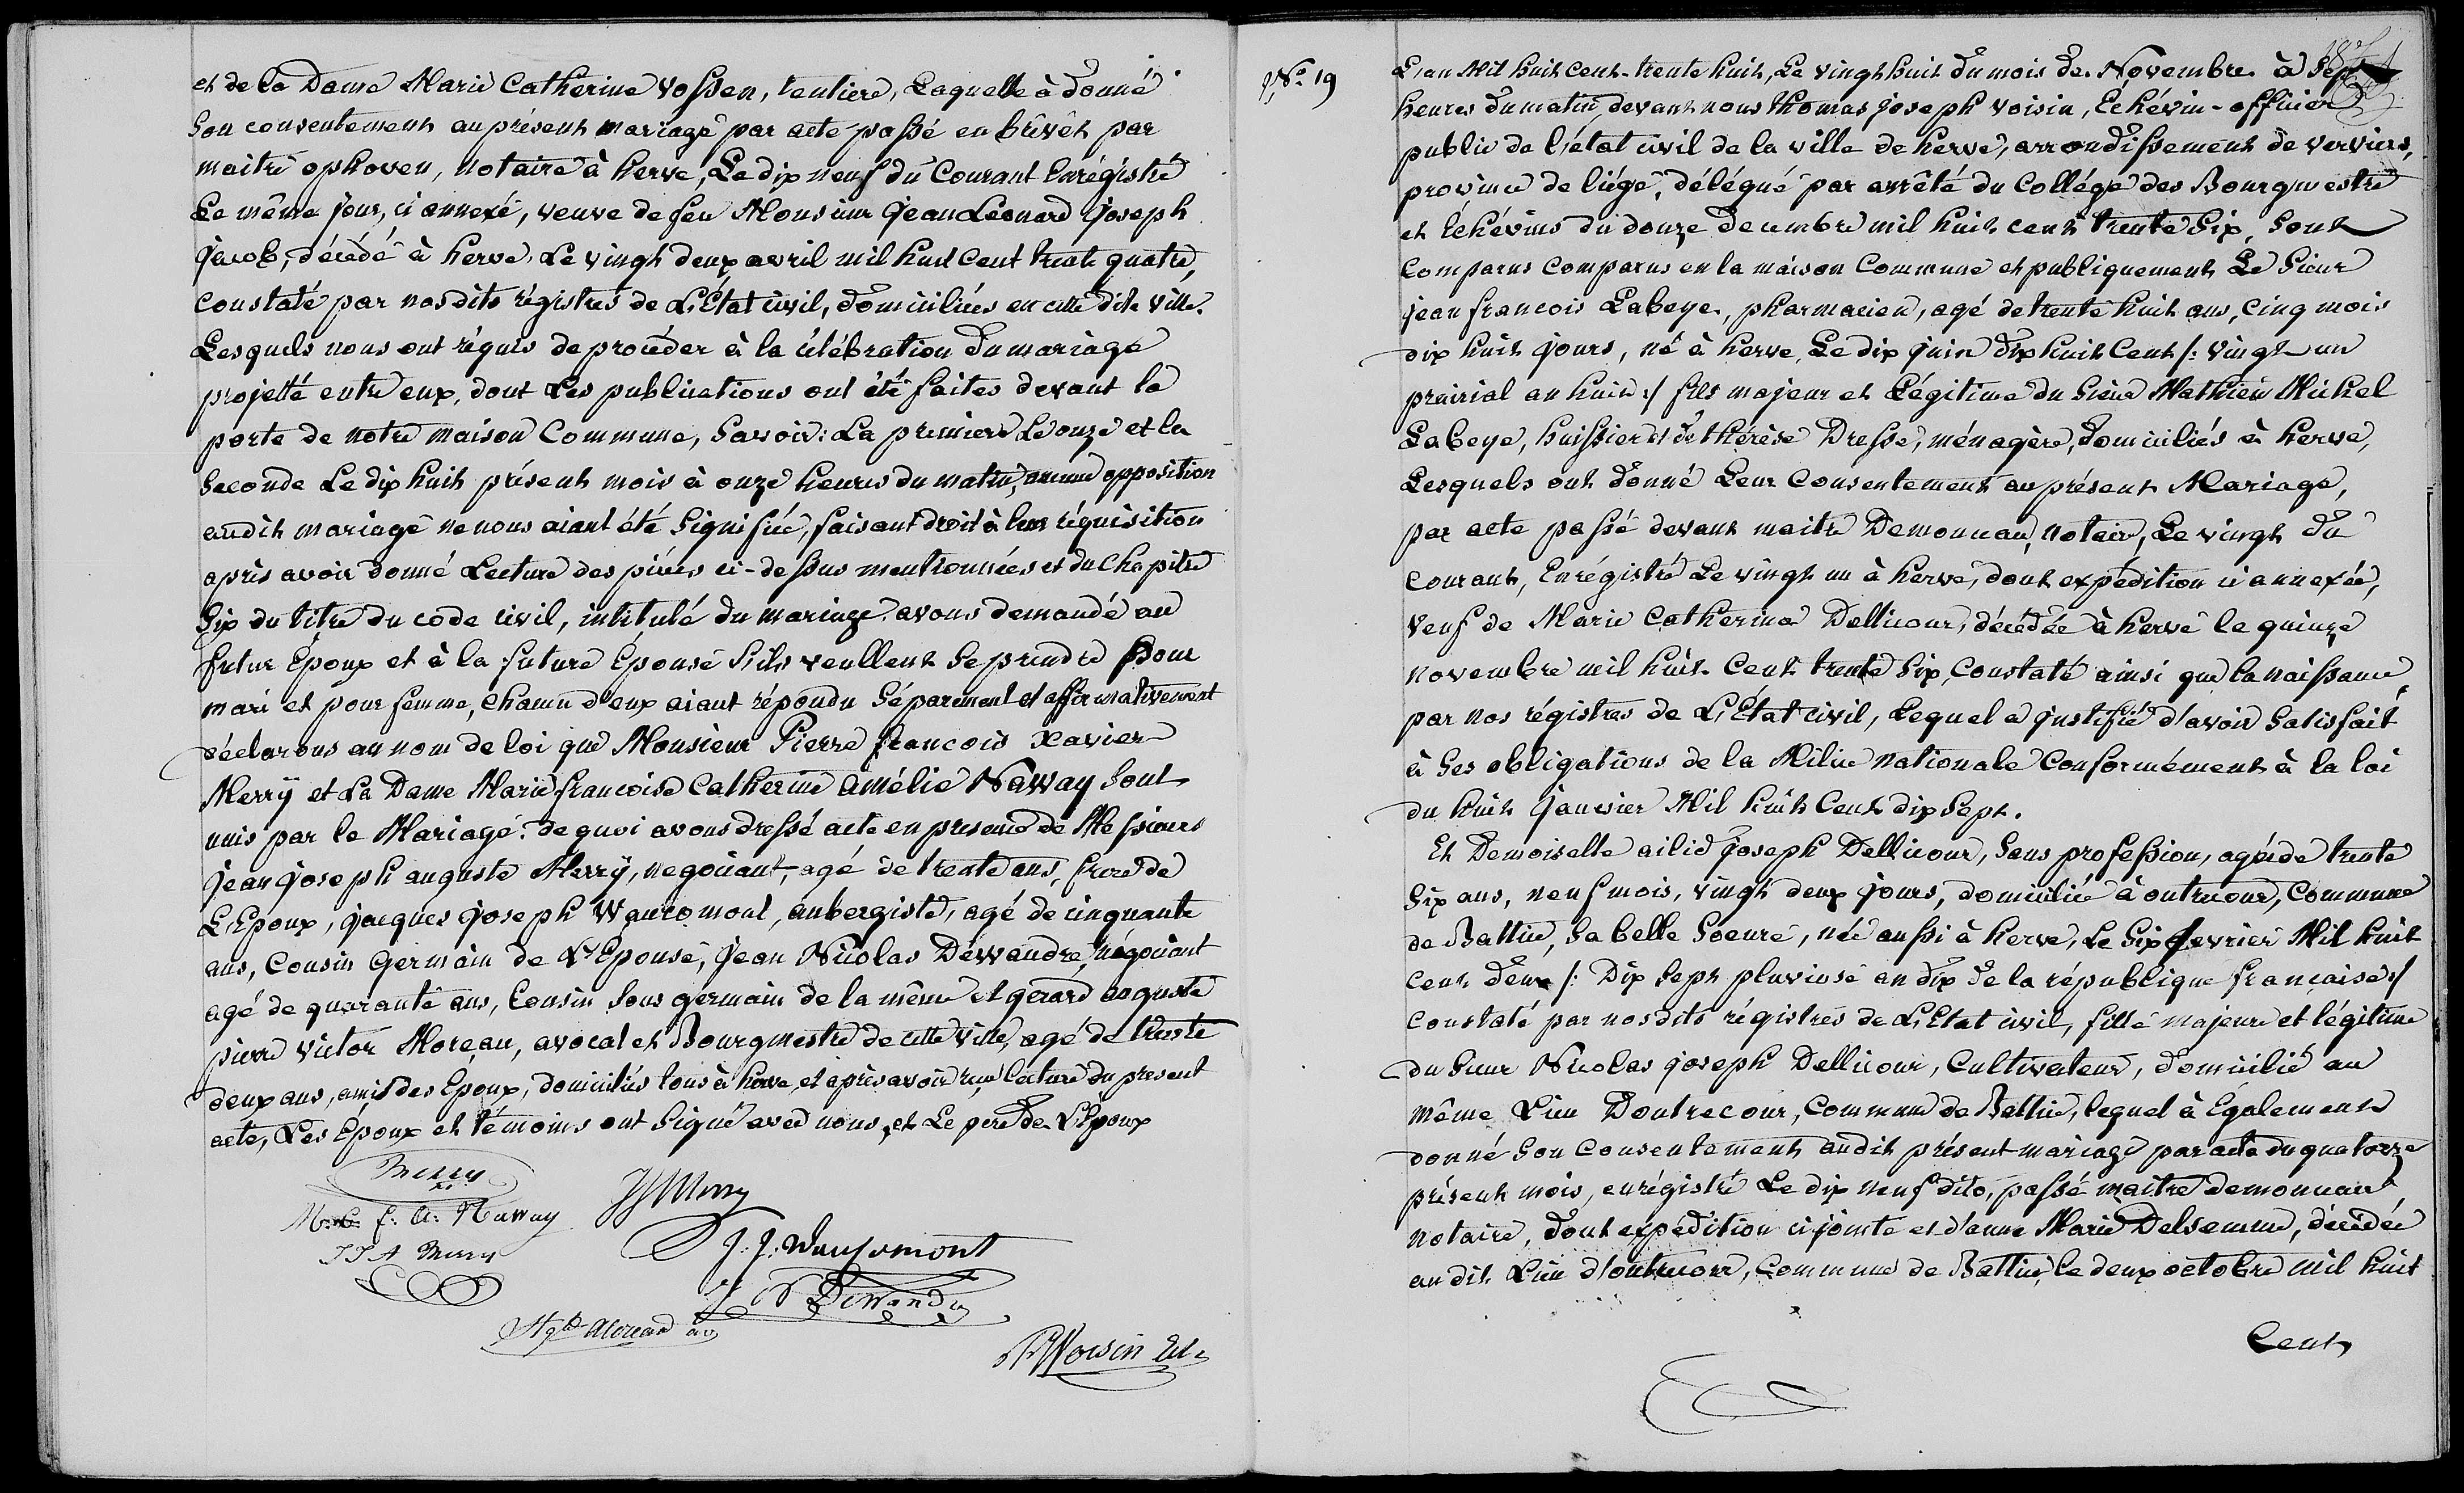 et de la Dame Marie Catherine Vossen, rentiere, Laquelle à donné
Son consentement au présent mariage par acte passé en brévêt par
maitre ophoven, notaire à herve, Le dix neuf du Courant Enrégistré
Le même jour, ci annexé, veuve de feu Monsieur Jean Leonard Joseph
Jacob, décédé à herve, Le vingt deux avril mil huit cent trente quatre,
constaté par nosdits régistres de L'État civil, domiciliées en cette dite ville.
Lesquels nous ont réquis de procéder à la célébration du mariage
projetté entre eux, dont Les publications ont été faites devant la
porte de notre maison Commune, Savoir: La premiere Le onze et la
Seconde Le dix huit présent mois à onze heures du matin, aucune opposition
audit mariage ne nous aiant été Signifiée, faisant droit à leur réquisition
après avoir donné Lecture des pièces ci-dessus mentionnées et du Chapitre
Six du titre du code civil, intitulé du mariage avons demandé au
futur Époux et à la future Épouse S'ils veullent Se prendre pour
mari et pour femme, chacun d'eux aiant répondu Séparement et affirmativement
déclarons au nom de loi que Monsieur Pierre francois Xavier
Merrÿ et La Dame Marie francoise Catherine Amélie Naway Sont
unis par le Mariage: de quoi avons dressé acte en presence de Messieurs
Jean Joseph auguste Merrÿ, negociant, agé de trente ans, frere de
L'Epoux, jacques joseph Waucomont, aubergiste, agé de cinquante
ans, Cousin Germain de L'Epouse, Jean Nicolas Déwandre, négociant
agé de quarante ans, Cousin Sous germain de la même et gérard auguste
pierre victor Moreau, avocat et Bourgmestre de cette ville, agé de trente
deux ans, amis des Epoux, domiciliés tous à herve, et après avoir reçu lecture du present
acte, Les Époux et témoins ont Signé avec nous, et Le pere de L'Époux
Merry
M: C: f: A: Naway
J J A Merry
J. J: Waucomont
J N Dewandre
Agte Moreau av
Voisin Ech
No 19
L'an Mil huit Cent-trente huit, Le vingt huit du mois de Novembre à Sept
heures du matin, devant nous thomas joseph voisin, Echévin-officier
public de l'état civil de la ville de herve, arrondissement de verviers,
province de liége, délégué par arrêté du Collége des Bourgmestre
et Echévins du douze Decembre mil huit cent trente Six, Sont
Comparus Comparus en la maison Commune et publiquement Le Sieur
jean francois Labeye, pharmacien, agé de trente huit ans, cinq mois
dix huit jours, né à herve, Le dix juin dix huit Cent /: vingt un
prairial an huit :/ fils majeur et Légitime du Sieur Mathieu Michel
Labeye, huissier et de thérèse Dresse, ménagère, domiciliés à herve,
Lesquels ont donné Leur Consentement au présent Mariage,
par acte passé devant maitre Demonceau, notaire, Le vingt du
courant, Enrégistré Le vingt un à herve, dont expédition ci annexée,
Veuf de Marie Catherine Dellicour, décédée à herve le quinze
novembre mil huit Cent trente Six, Constaté ainsi que la naissance,
par nos régistres de L'État civil, Lequel a justifié d'avoir Satisfait
à Ses obligations de la Milice Nationale Conformément à la loi
du huit Janvier Mil huit Cent dix Sept.
Et Demoiselle ailid Joseph Dellicour, Sans profession, agée de trente
Six ans, neuf mois, vingt deux jours, domiciliée à outrecour, Commune
de Battice, Sa belle Soeure, née aussi à herve, Le Six fevrier Mil huit
Cent deux /: Dix Sept pluviose an dix de la république francaise :/
Constaté par nosdits régistres de L'Etat civil, fille majeure et légitime
du Sieur Nicolas joseph Dellicour, Cultivateur, domicilié au
même Lieu Doutrecour, Commune de Battice, lequel à Egalement
donné Son Consentement audit présent mariage par acte du quatorze
présent mois, enrégistré Le dix neuf dito, passé maitre demonceau
notaire, dont expédition ci jointe et d'anne Marie Delsemme, décédée
au dit Lieu d'outrecour, Commune de Battice, le deux octobre mil huit
Cent